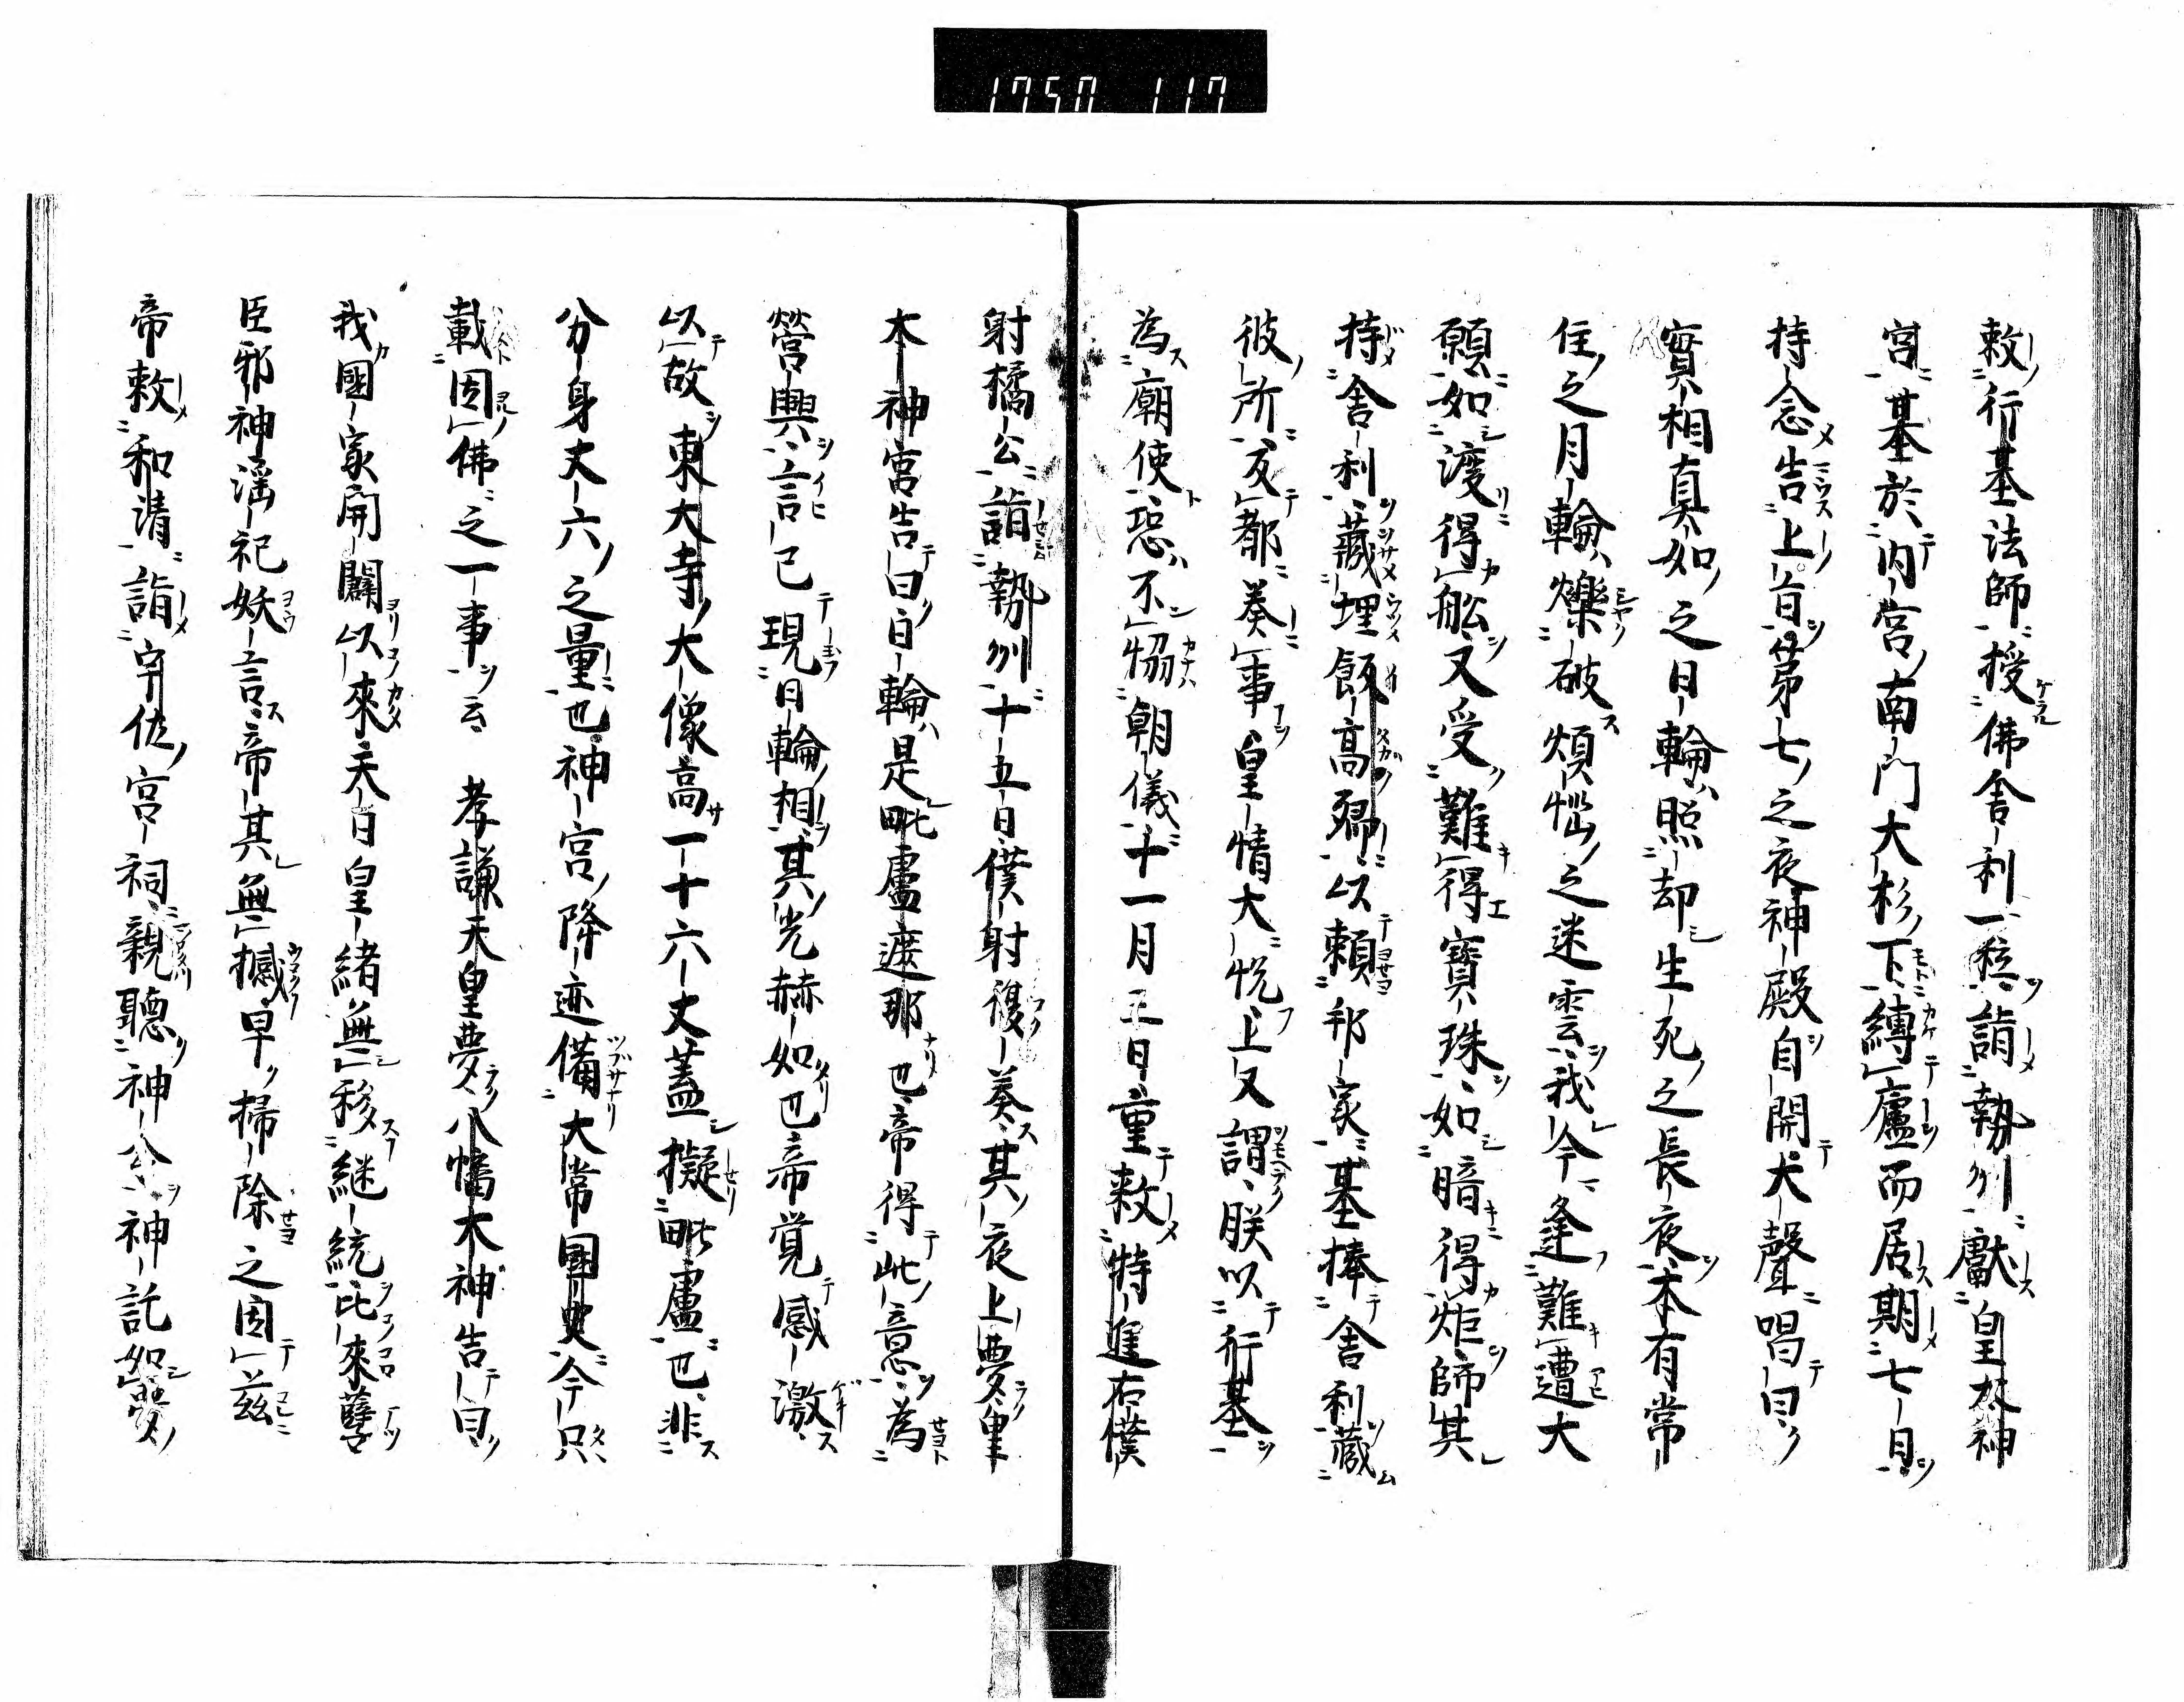 1750 117
敕行基法師授佛舍利一粒詣勢州獻皇太神
宮基於内宮南門大杉下縛廬而居期七日
持念告上首第七之夜神殿自開大聲唱曰
實相真如之日輪照却生死之長夜本有常
住之月輪爍破煩惱之迷雲我今逢難遭大
願如渡得舩又受難得寶珠如暗得炬師其
持舍利藏埋飯高郷以賴邦家基捧舍利藏
彼所反都奏事皇情大悦上又謂朕以行基
為廟使恐不恊朝儀十一月三日重敕特進右僕
射橘公詣勢州十五日僕射復奏其夜上夢皇
太神宮告曰日輪是毗盧遮那也帝得此意為
營興言已現日輪相其光赫如也帝覚感激
以故東大寺大像高一十六丈蓋擬毗盧也非
分身丈六之量也神宮降迹備大常國史今只
載因佛之一事云 孝謙天皇夢八幡大神告曰
我國家開闢以來天日皇緒無移継統比來孽
臣邪神滛祀妖言帝其無撼早掃除之因茲
帝敕和清詣宇佐宮祠親聽神命神託如夢